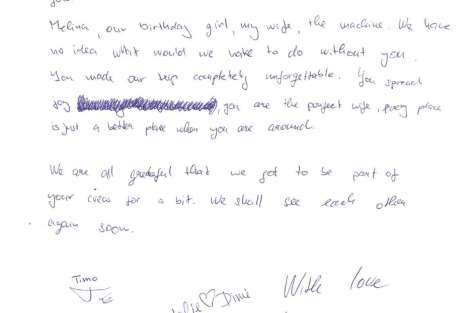 Melina, our birthday girl, my wife, the machine. We have
no idea what would we have to do without you.
You made our trip completely unforgettable. You spread
joy, you are the perfect wife, every place
is just a better place when you are around.
We are all grateful that we got to be part of
your crew for a bit. We shall see each other
again soon.
Timo
♡ Dimi
With love